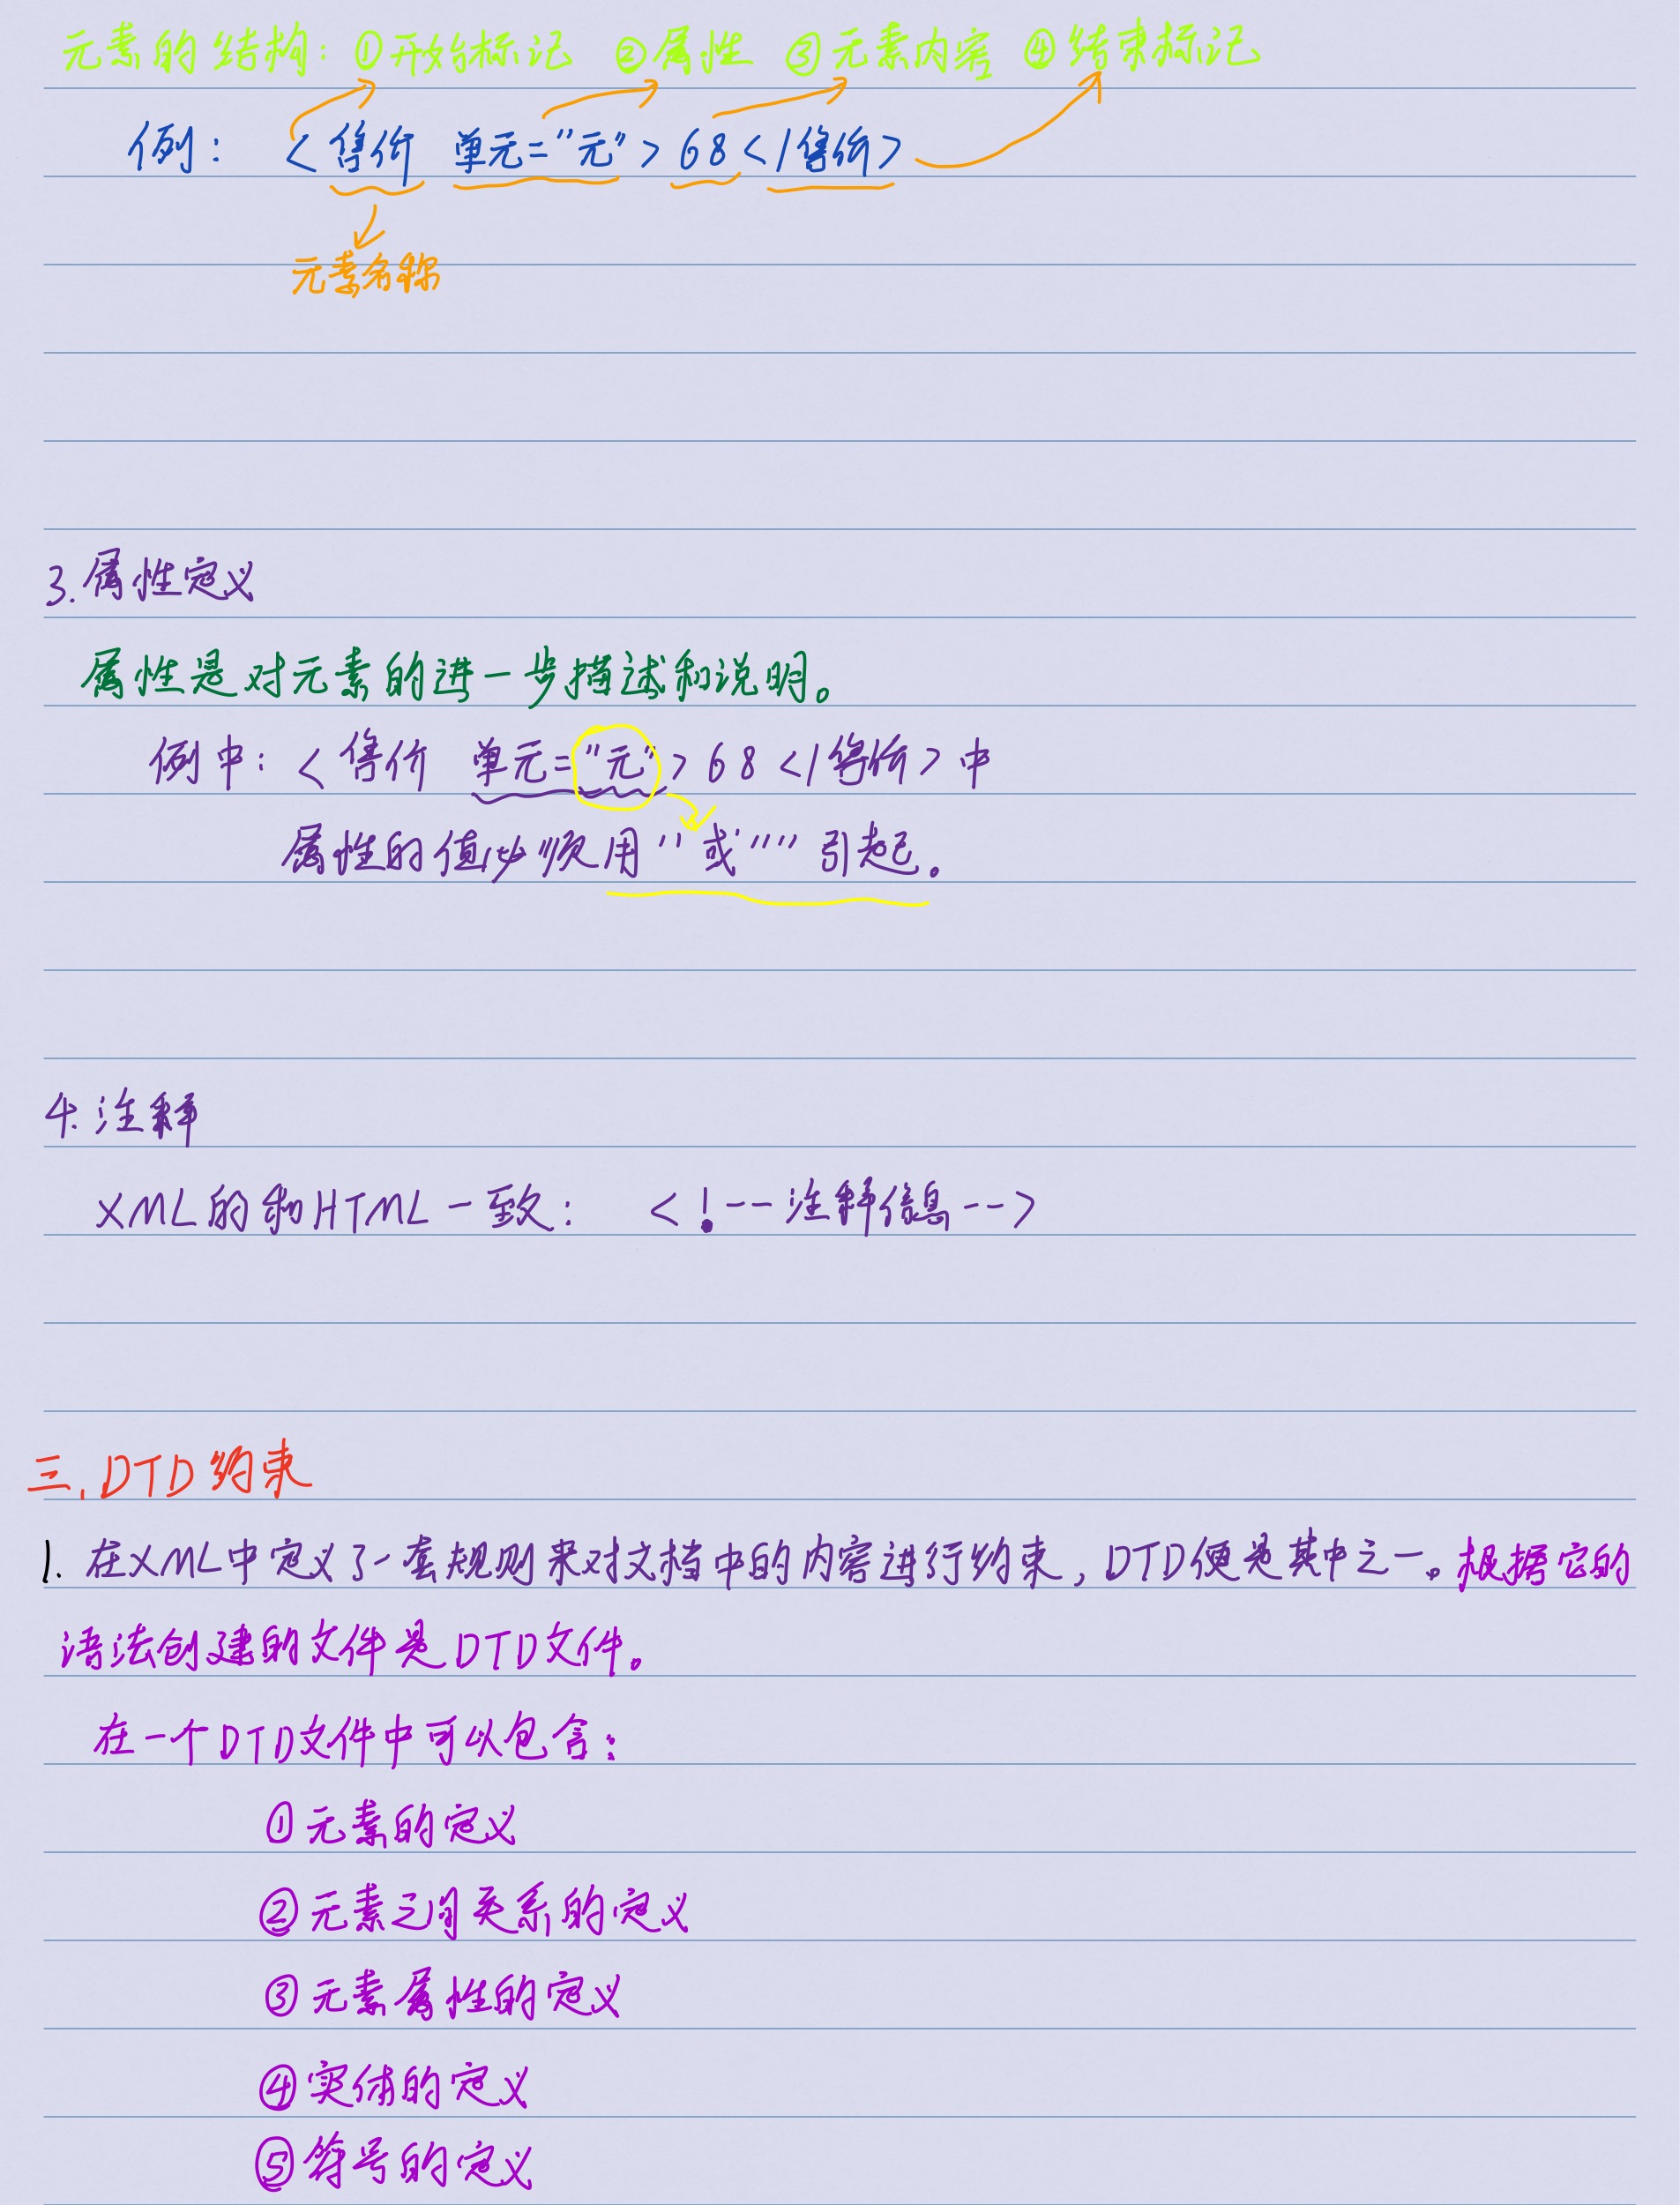 元素的结构: ①开始标记 ②属性 ③元素内容 ④结束标记
例: <售价 单元="元">68</售价>
元素名称
3.属性定义
属性是对元素的进一步描述和说明。
例中: <售价 单元="元">68</售价>中
属性的值必须用''或""引起。
4.注释
XML的和HTML一致: <!--注释信息-->
三.DTD约束
1.在XML中定义了一套规则来对文档中的内容进行约束,DTD便是其中之一。根据它的
语法创建的文件是DTD文件。
在一个DTD文件中可以包含:
①元素的定义
②元素之间关系的定义
③元素属性的定义
④实体的定义
⑤符号的定义